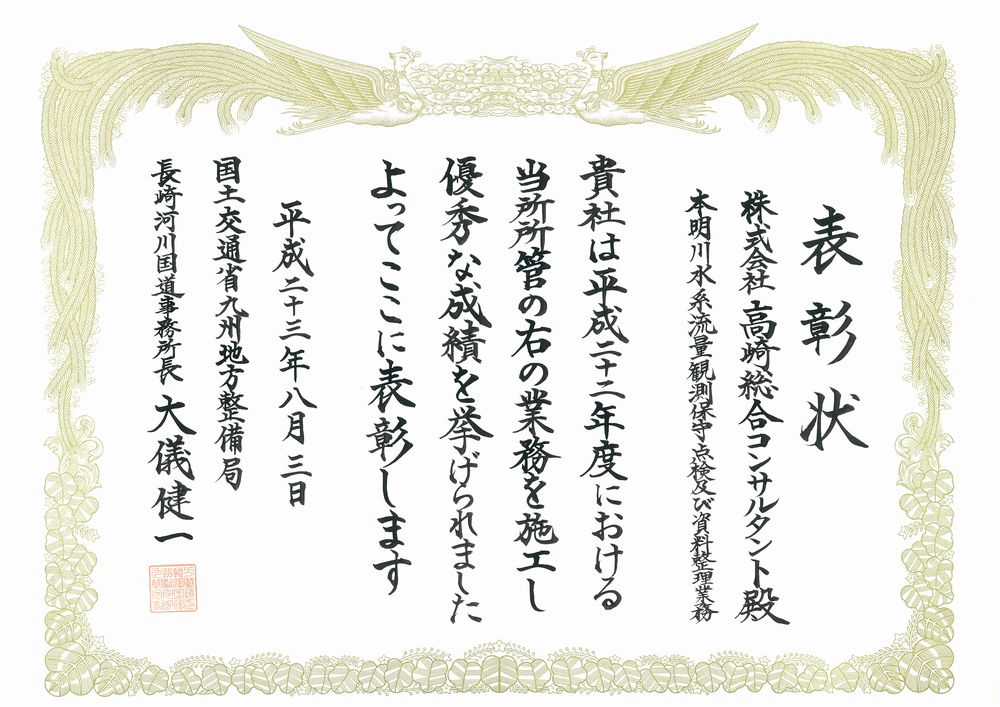 表彰状
株式会社 高崎総合コンサルタント殿
本明川水系流量観測保守点検及び資料整理業務
貴社は平成二十二年度における
当所所管の右の業務を施工し
優秀な成績を挙げられました
よってここに表彰します
平成二十三年八月三日
国土交通省九州地方整備局
長崎河川国道事務所長 大儀健一